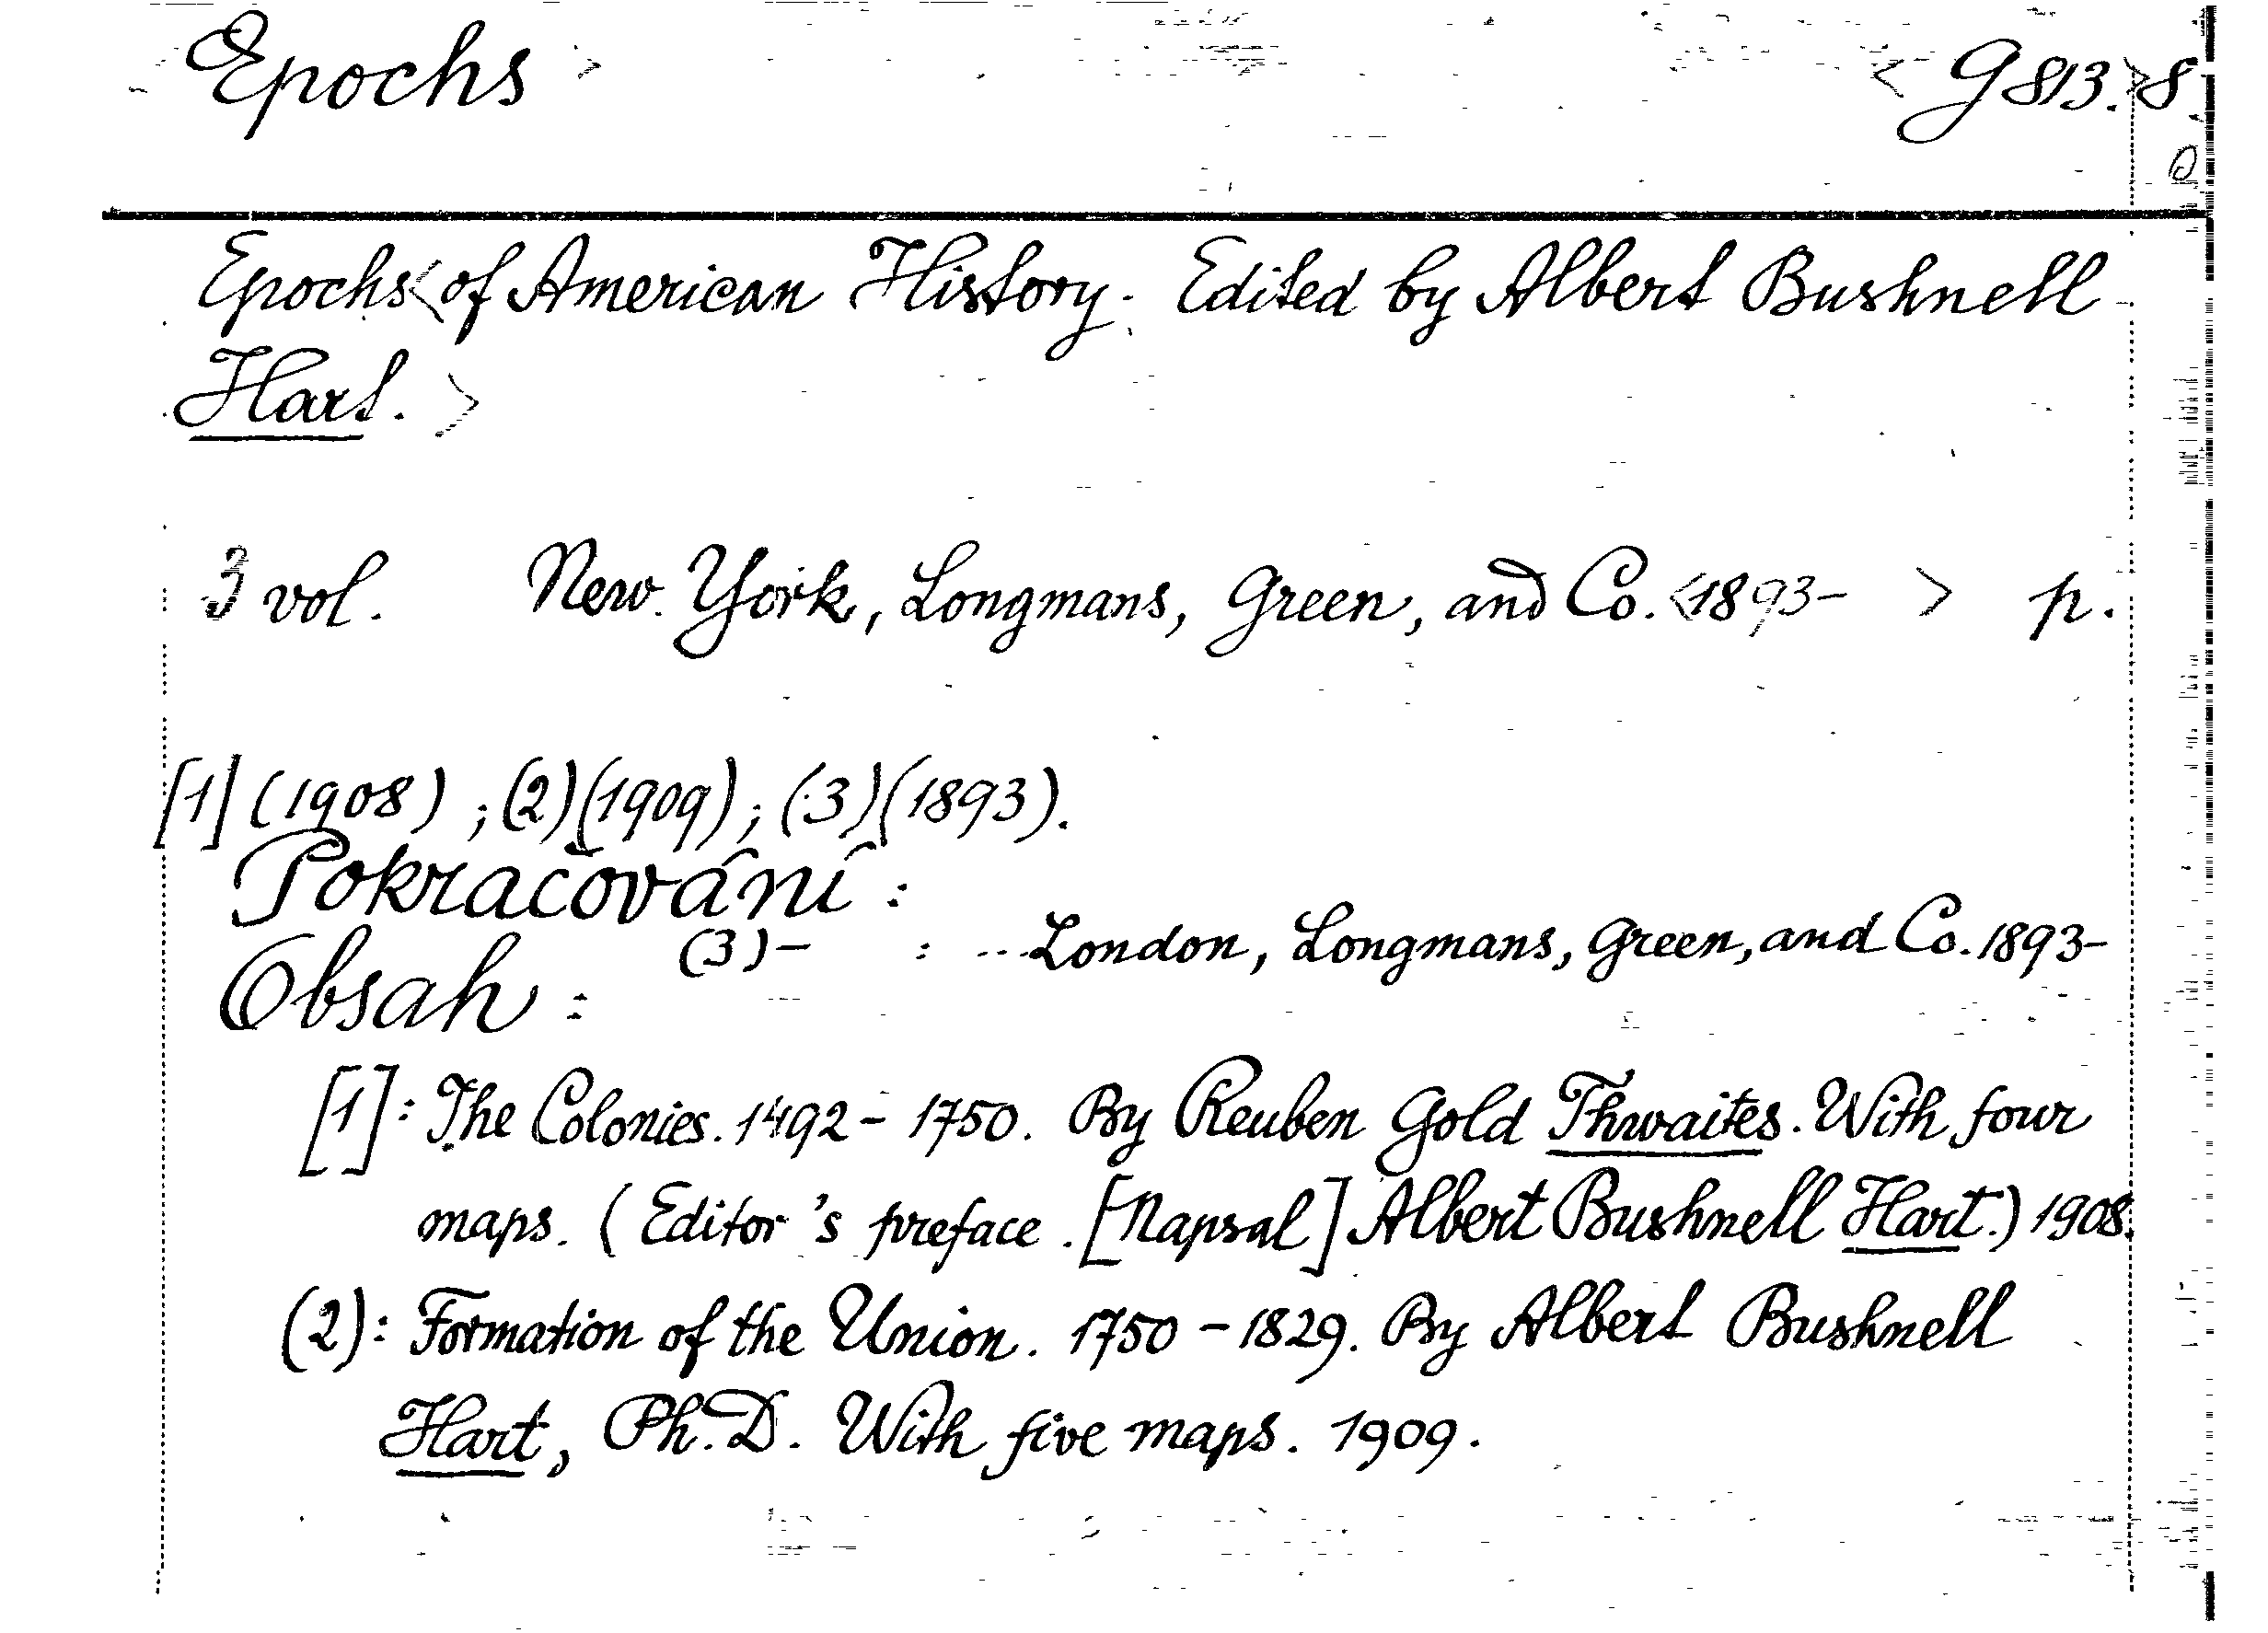 Epochs > < G 813.>8.
Epochs< of American History. Edited by Albert Bushnell
Hart. >
3 vol. New York, Longmans, Green, and Co. <1893- > p.
[1] (1908) ; (2)(1909) ; (3)(1893).
Pokračování :
(3)- : ...London, Longmans, Green, and Co. 1893-
Obsah :
[1]: The Colonies. 1492 - 1750. By Reuben Gold Thwaites. With four
maps. (Editor's preface. [Napsal] Albert Bushnell Hart.) 1908.
(2): Formation of the Union. 1750 - 1829. By Albert Bushnell
Hart, Ph.D. With five maps. 1909.